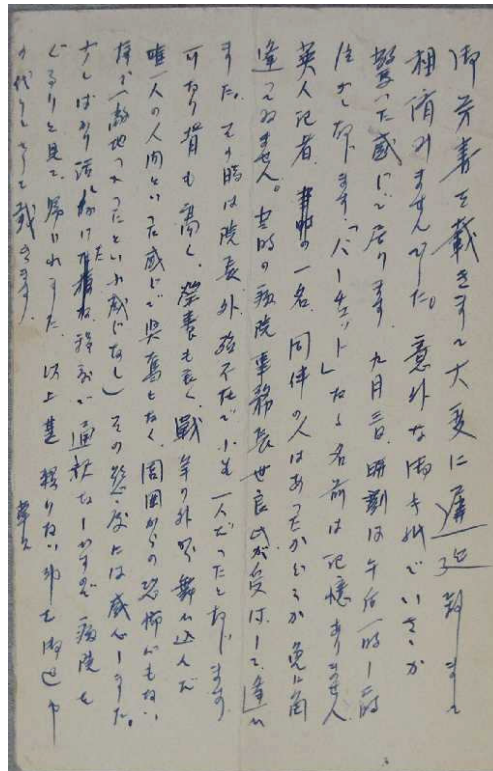 御芳書を載きまして大変に遅延致しまして
相済みませんでした。意外な御手紙でいささか
驚った感じで居ります。九月三日、時刻は午后一時―二時
位かと存じます。「バーチェット」なる名前は記憶ありません
英人記者の一名、同伴の人はあったかどうか兎に角
逢ってゐません。当時の病院事務長世良氏が受付して逢ひ
ました。その時は院長外殆不在で小生一人だったと存じます
可なり背も高く、栄養も良く、戦争の外から舞ひ込んだ
唯一人の人間といった感じで興奮もなく、周囲からの恐怖心もない
様が(敵地へ入ったといふ感じなし)その態度には感心しました。
少しばかり話しかけた程度で通訳なしかすので病院を
ぐるりと見て帰られました。以上甚
の代りとして載きます。